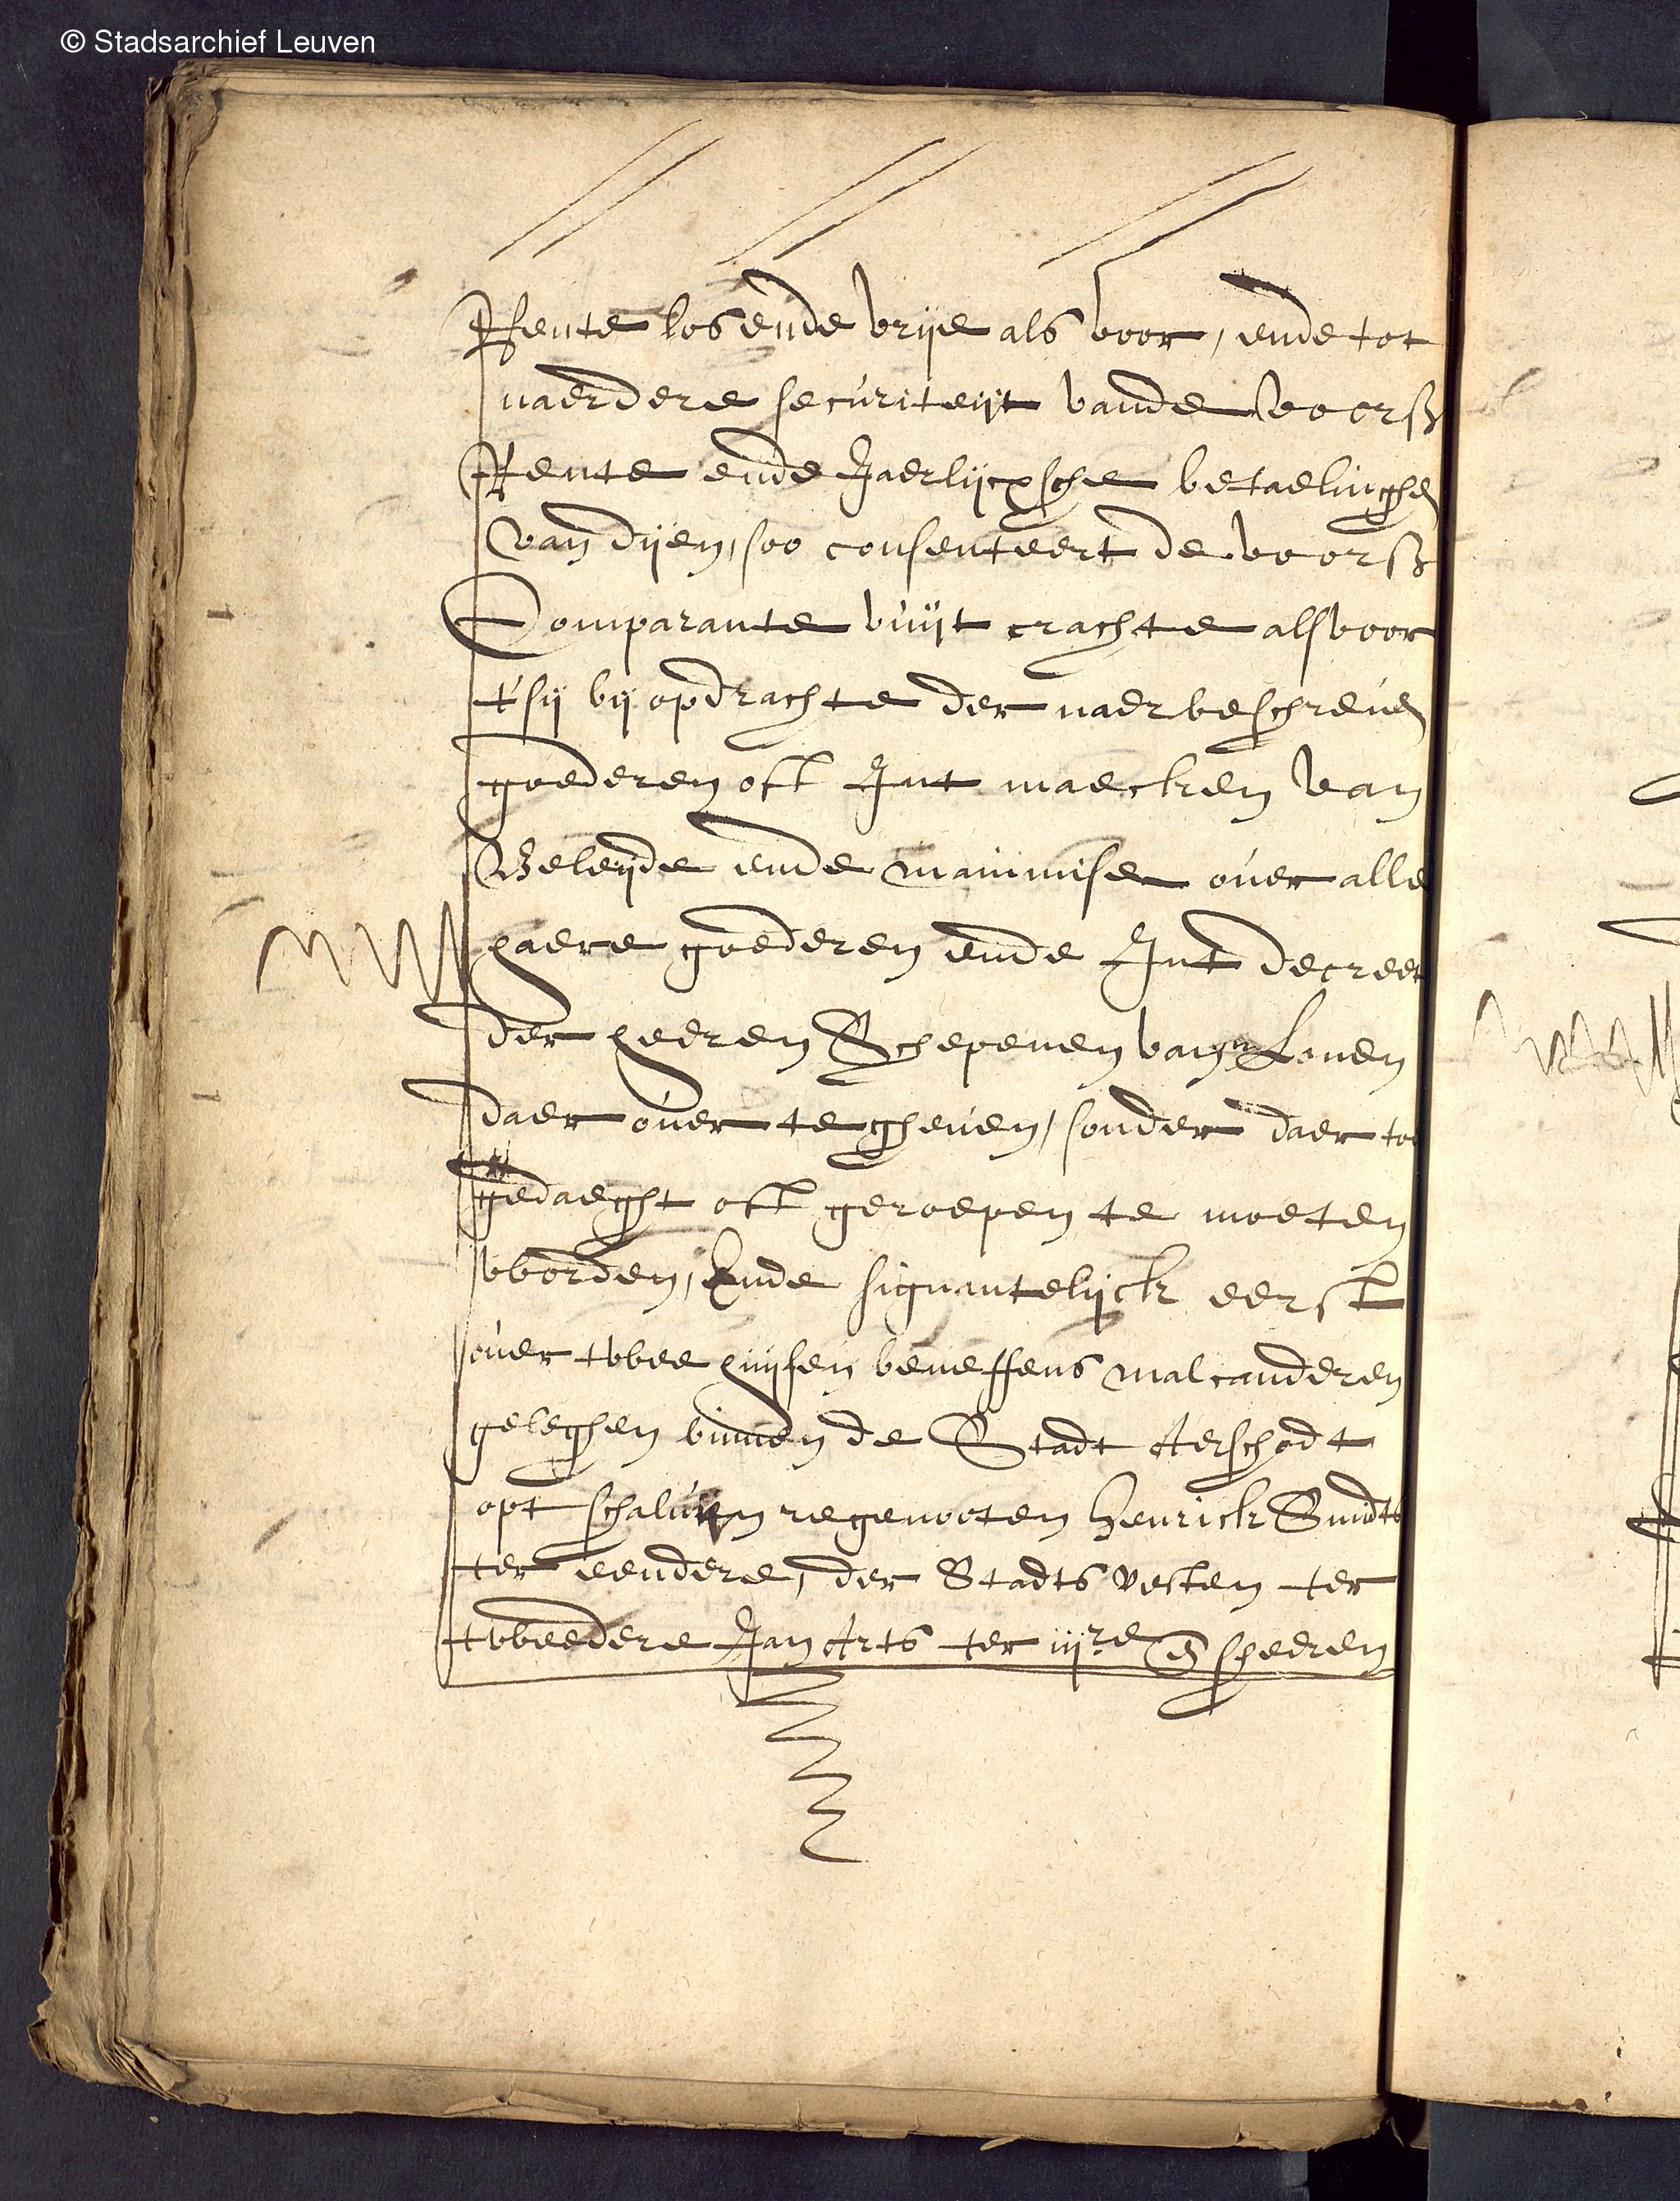 © Stadsarchief Leuven
Rente los ende vrije als voor, ende tot
naerdere securiteijt vande voors
Rente ende Jaerlijcxsche betaelinghe
van dijen, soo consenteert de voors
Comparante vuijt crachte als voor
t'sij bij opdrachte der naerbeschreuen
goederen oft Int maecken van
Beleijde ende mainmise ouer alle
haere goederen ende Int decreet
der heeren Schepenen van Louen
daer ouer te gheuen, sonder daer toe
gedaeght oft geroepen te moeten
worden, Ende signantelijck eerst
ouer twee huijsen beneffens malcanderen
geleghen binnen de Stadt Aerschodt
opt regenooten Henrick Smidts
ter eendere, der Stadts vesten ter
tweedere Jan Arts ter iijre en sheeren